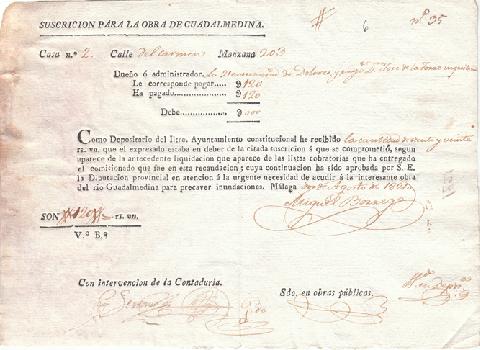 6 nº 35
SUSCRICION PARA LA OBRA DE GUADALMEDINA.
Casa n.º 2. Calle del Carmen Manzana 203
Dueño ó administrador. La Hermandad de Dolores, y Jose de la Torre
Le corresponde pagar. 120
Ha pagado. 120
Debe. 000
Como Depositario del Iltre. Ayuntamiento constitucional he recibido la cantidad de ciento y veinte
rs. vn. que el expresado estaba en deber de la citada suscricion á que se comprometió, segun
aparece de la antecedente liquidacion que aparece de las listas cobratorias que ha entregado
el comisionado que fue en esta recaudacion y cuya continuacion ha sido aprobada por S. E.
la Diputacion provincial en atencion á la urgente necesidad de acudir á la interesante obra
del rio Guadalmedina para precaver inundaciones. Málaga de Agosto de
Miguel
SON 120 rs. vn.
V.º B.º
Con intervencion de la Contaduría.
Sdo. en obras públicas.